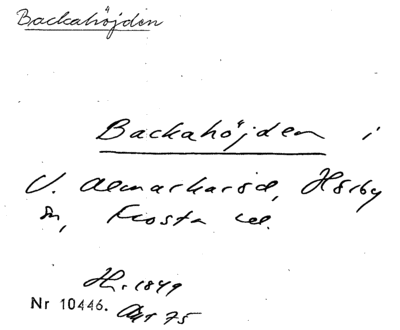 Backahöjden
Backahöjden i
V. Almarkaröd, Hörby
sn, Frosta
Hr. 1849
Nr 10446. Akt 75